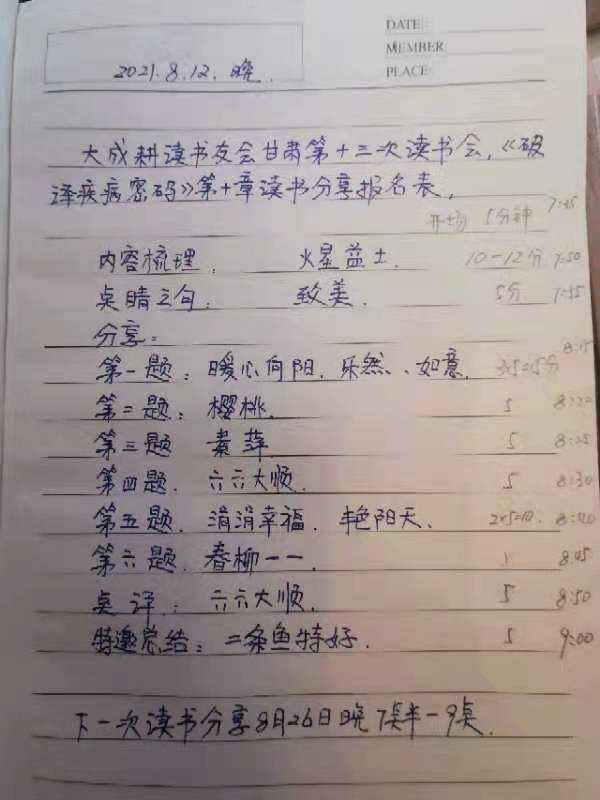 DATE
MEMBER
PLACE
2021.8.12.晚.
大成耕读书友会甘肃第十三次读书会,《破
译疾病密码》第十章读书分享报名表.
开场 5分钟 7:45
内容梳理. 火星益士. 10-12分 7:50
点睛之句. 致美. 5分 7:55
分享: 8:15
第一题: 暖心向阳. 乐然、如意. 3×5=15分
第二题: 樱桃. 5 8:20
第三题 素萍 5 8:25
第四题. 六六大顺. 5 8:30
第五题. 涓涓幸福. 艳阳天. 2×5=10. 8:40
第六题. 春柳一一. 8:45
点评: 六六大顺. 5 8:50
特邀总结: 二条鱼特好. 5 9:00
下一次读书分享8月26日晚7点半-9点.